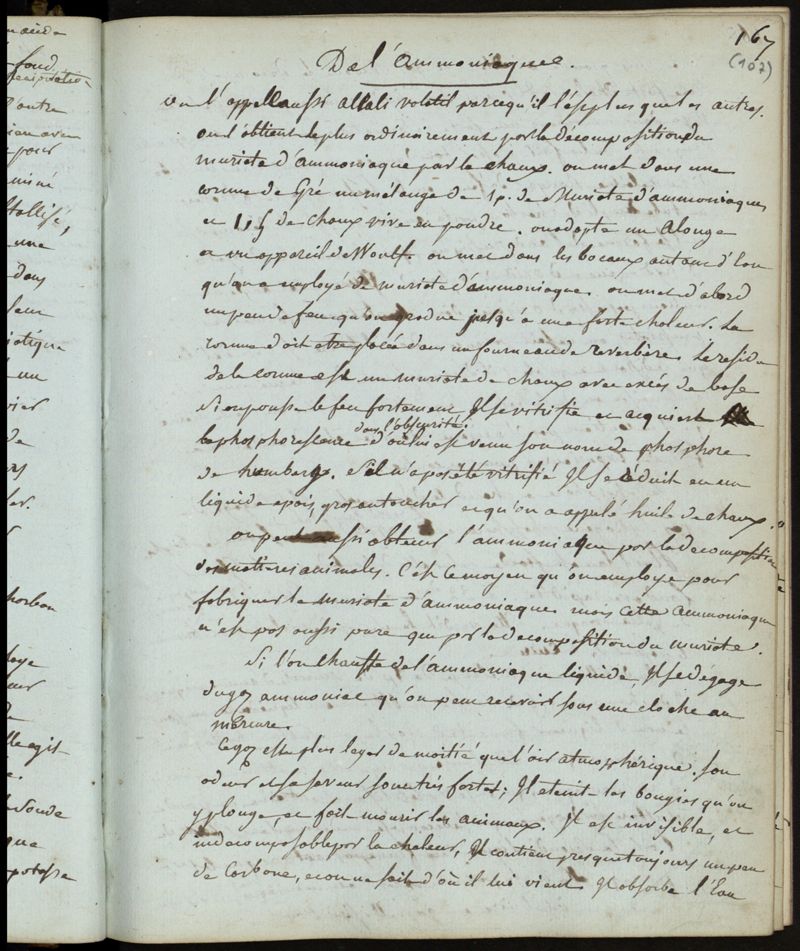 167
(107)
De l'ammoniaque.
on l'appelle aussi alkali volatil parcequ'il l'est plus que les autres.
on l'obtient le plus ordinairement par la decomposition du
muriate d'ammoniaque par la chaux. on met dans une
cornue de Gré un mélange de 1 p. de Muriate d'ammoniaque
et de chaux vive en poudre. on adapte un alonge
et un appareil de Woulf. on met dans les bocaux autant d'Eau
qu'on a employé de muriate d'ammoniaque. on met d'abord
un peu de feu qu'on gradue jusqu'à une forte chaleur. La
cornue doit etre placée dans un fourneau de Reverbère. Le residu
de la cornue est un muriate de chaux avec excés de base
Si on pousse le feu fortement, Il se vitrifie et acquiert
la phosphorescence dans l'obscurité. d'où lui est venu son nom de phosphore
de humberg. S'il n'a pas été vitrifié Il se réduit en un
liquide epais, gras au toucher et qu'on a appelé huile de chaux.
on peut aussi obtenir l'ammoniaque par la decomposition
des matieres animales. C'est le moyen qu'on employe pour
fabriquer le Muriate d'ammoniaque mais cette ammoniaque
n'est pas aussi pure que par la decomposition du muriate.
Si l'on chauffe de l'ammoniaque liquide, Il se degage
du gaz ammoniac qu'on peut recevoir sous une cloche au
mercure.
Ce gaz est plus leger de moitié que l'air atmospherique. Son
odeur et sa saveur sont très fortes; Il eteint les bougies qu'on
y plonge, et fait mourir les animaux. Il est invisible, et
indecomposable par la chaleur, Il contient presque toujours un peu
de Carbone, et on ne sait d'où il lui vient. Il absorbe l'Eau